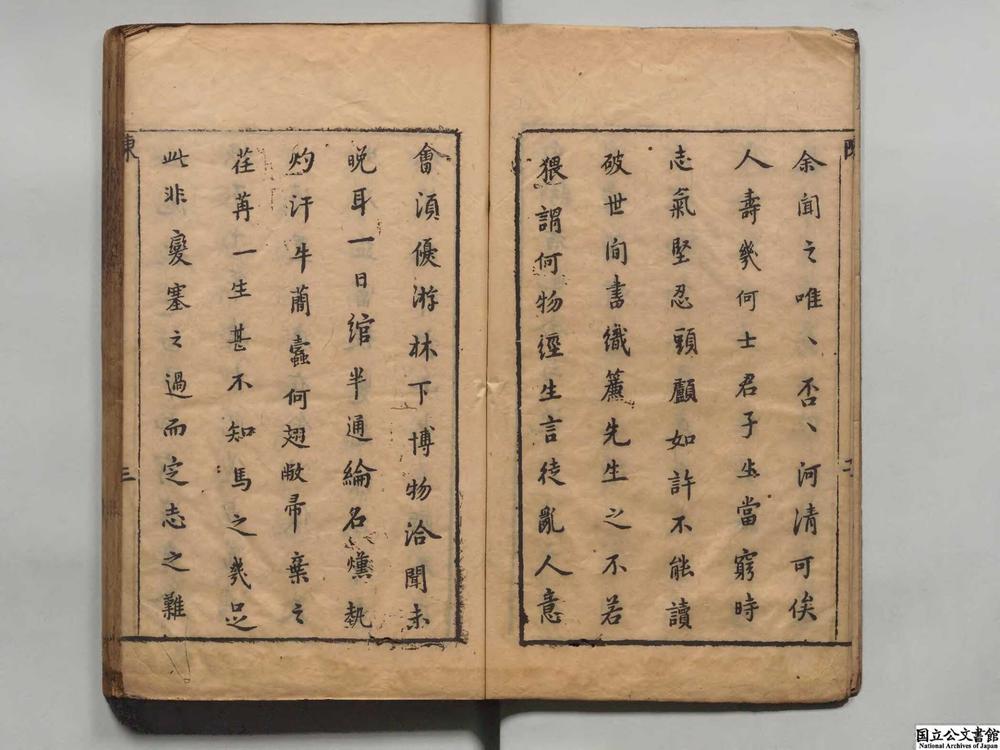 余聞之唯、否、河清可俟
人壽幾何士君子生當窮時
志氣堅忍頭顱如許不能讀
破世間書織簾先生之不若
猥謂何物經生言徒亂人意
會須優游林下博物洽聞未
晚耳一日綰半通綸名爍熱
灼汗牛蘭蠹何翅敝帚棄之
荏苒一生甚不知馬之幾足
此非變塞之過而定志之難
陳
三
国立公文書館
National Archives of Japan